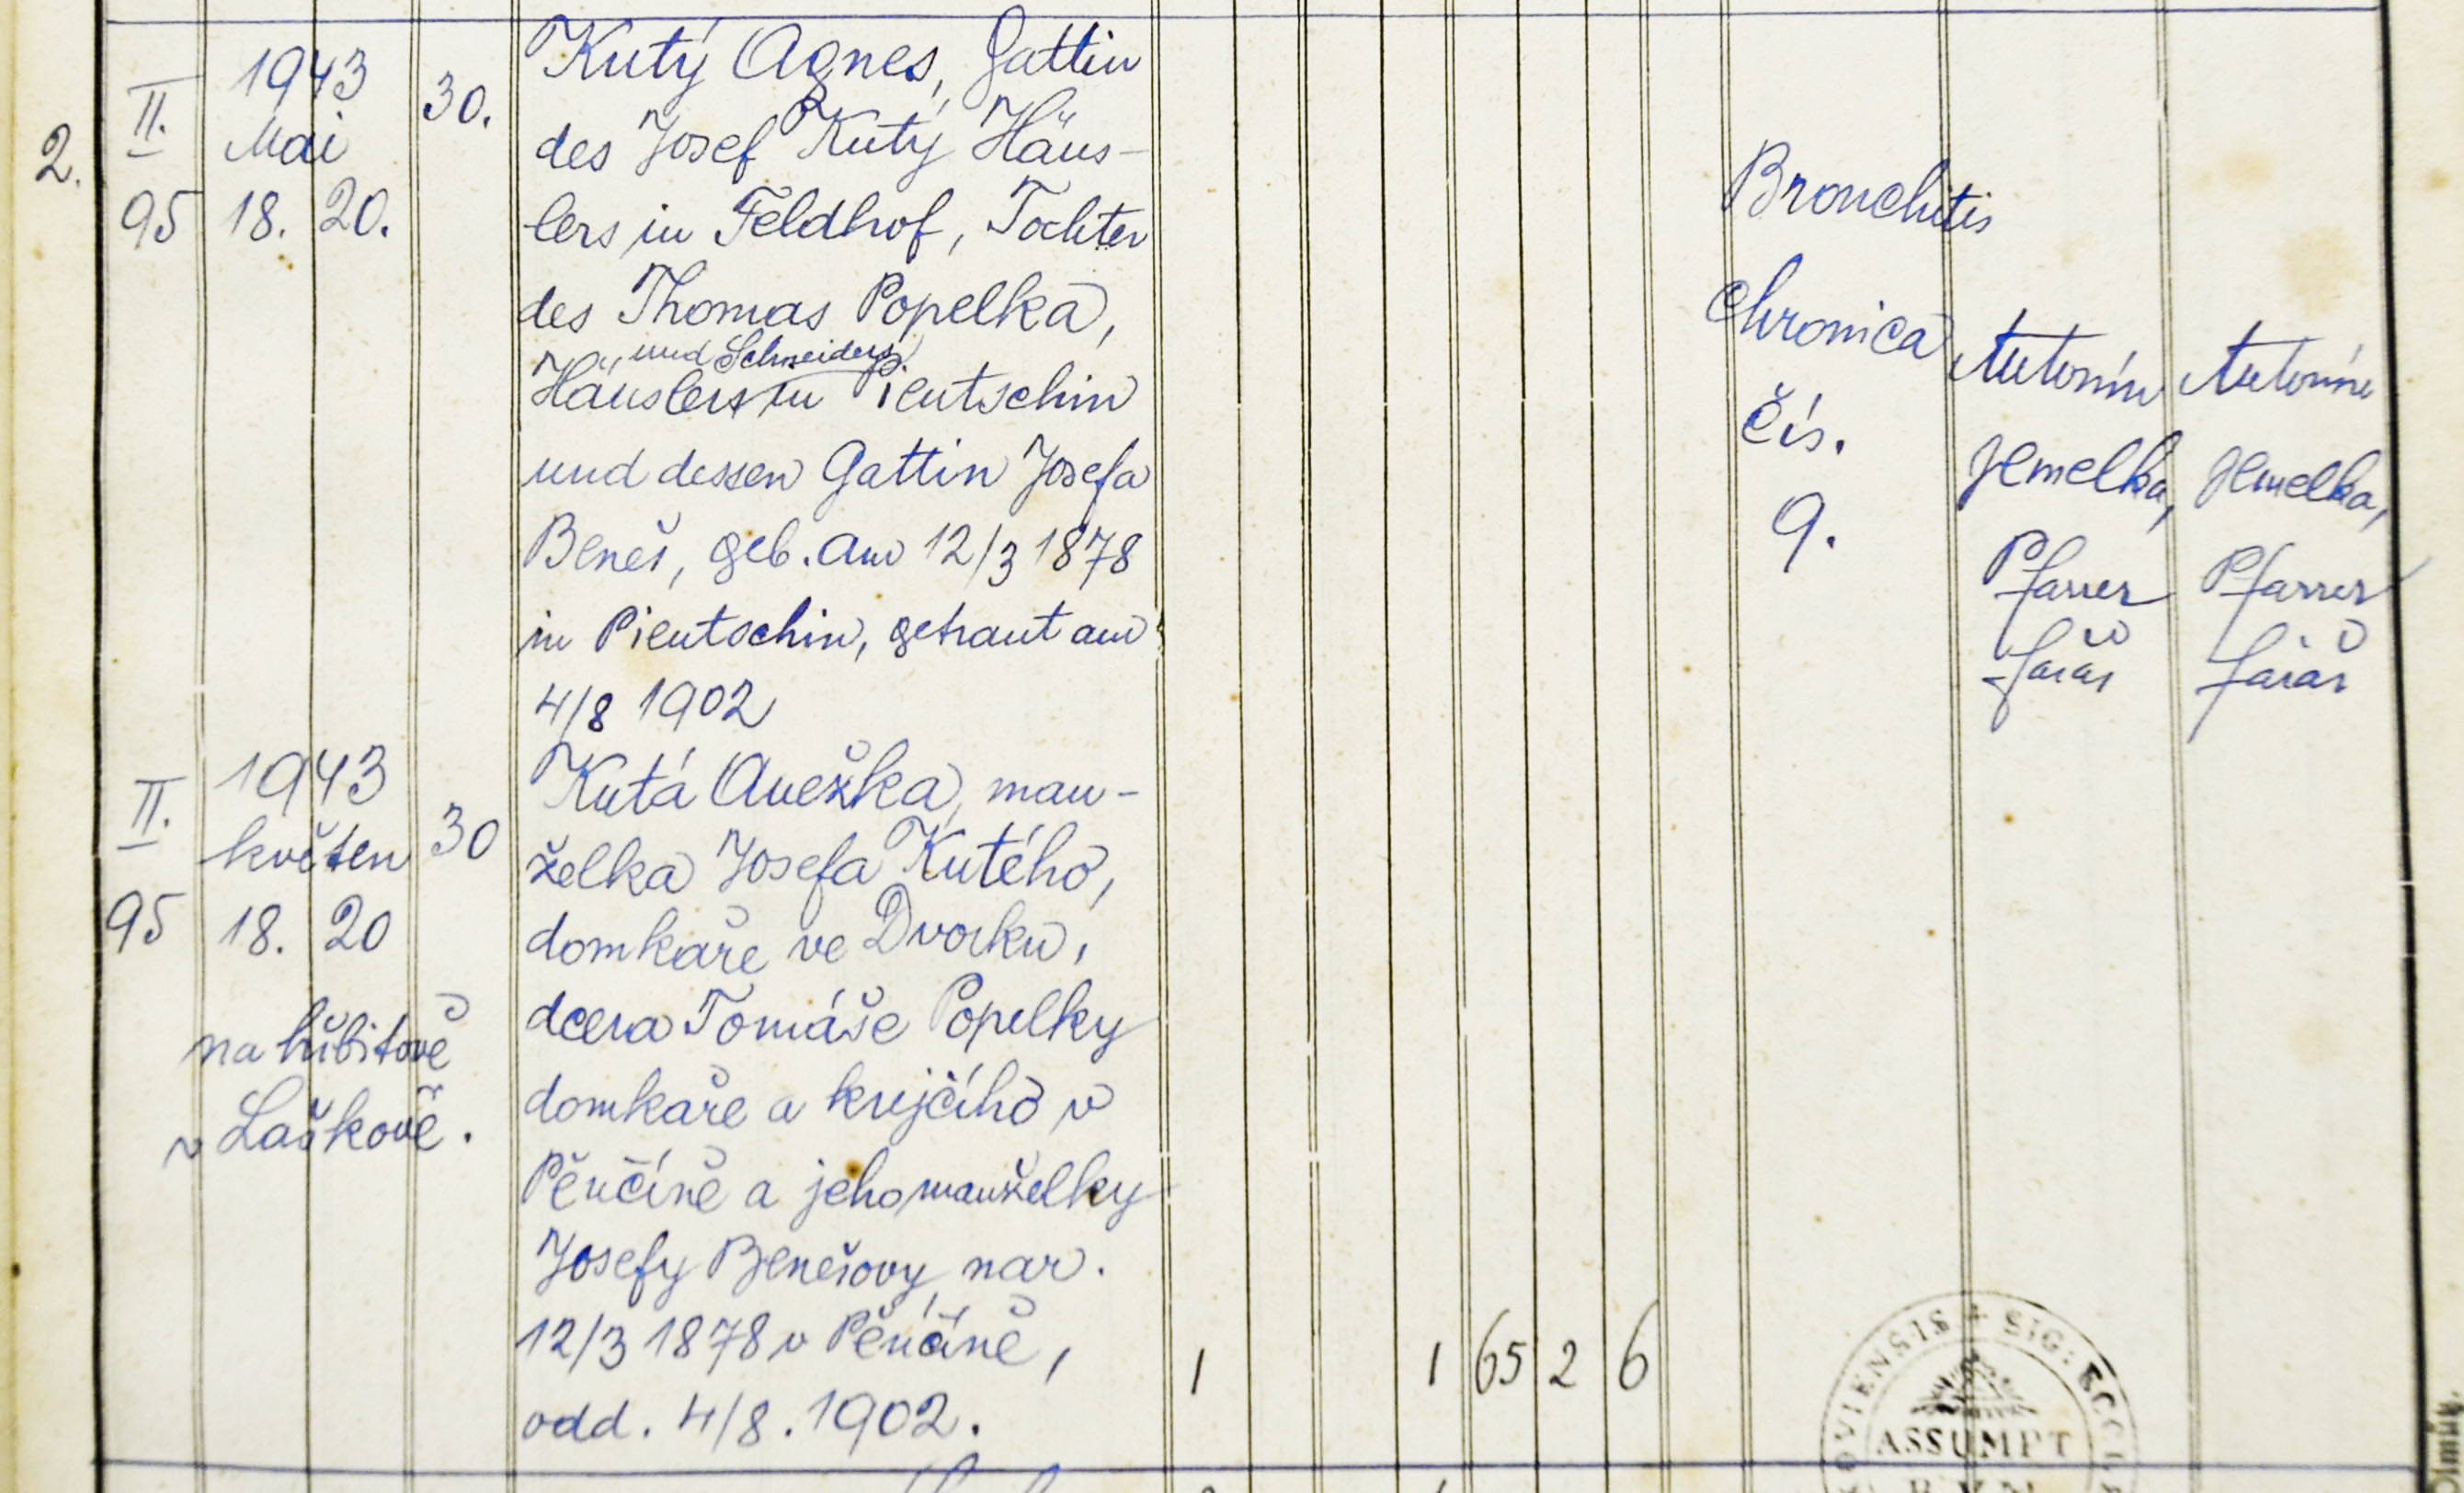 2.
II.
95
1943
Mai
18. 20.
30.
Kutý Agnes, Gattin
des Josef Kutý Häus-
lers in Feldhof, Tochter
des Thomas Popelka,
und Schneiders
Häuslers in Pientschin
und dessen Gattin Josefa
Beneš, geb. am 12/3 1878
in Pientschin, getraut am
4/8 1902
Bronchitis
chronica
čís.
9.
Antonín
Jemelka,
Pfarrer
farář
Antonín
Jemelka,
Pfarrer
farář
II.
95
1943
květen
18. 20
30
na hřbitově
v Laškově.
Kutá Anežka, man-
želka Josefa Kutého,
domkáře ve Dvorku,
dcera Tomáše Popelky
domkáře a krejčího v
Pěnčíně a jeho manželky
Josefy Benešovy, nar.
12/3 1878 v Pěnčíně,
odd. 4/8. 1902.
1 1 65 2 6
OVIENSIS + SIG: ECCL
ASSUMPT